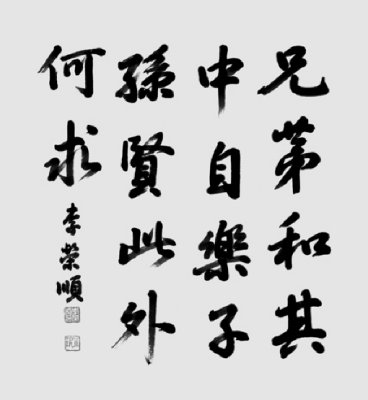 兄弟和其
中自樂子
孫賢此外
何求
李榮順